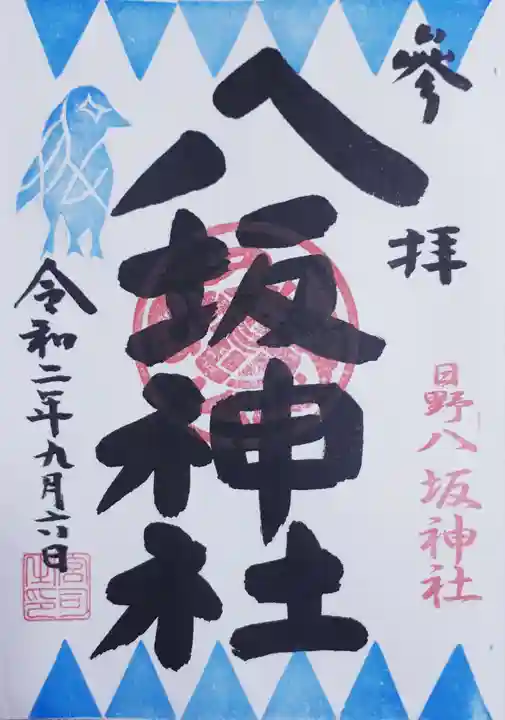 參拝
日野八坂神社
八坂神社
令和二年九月六日